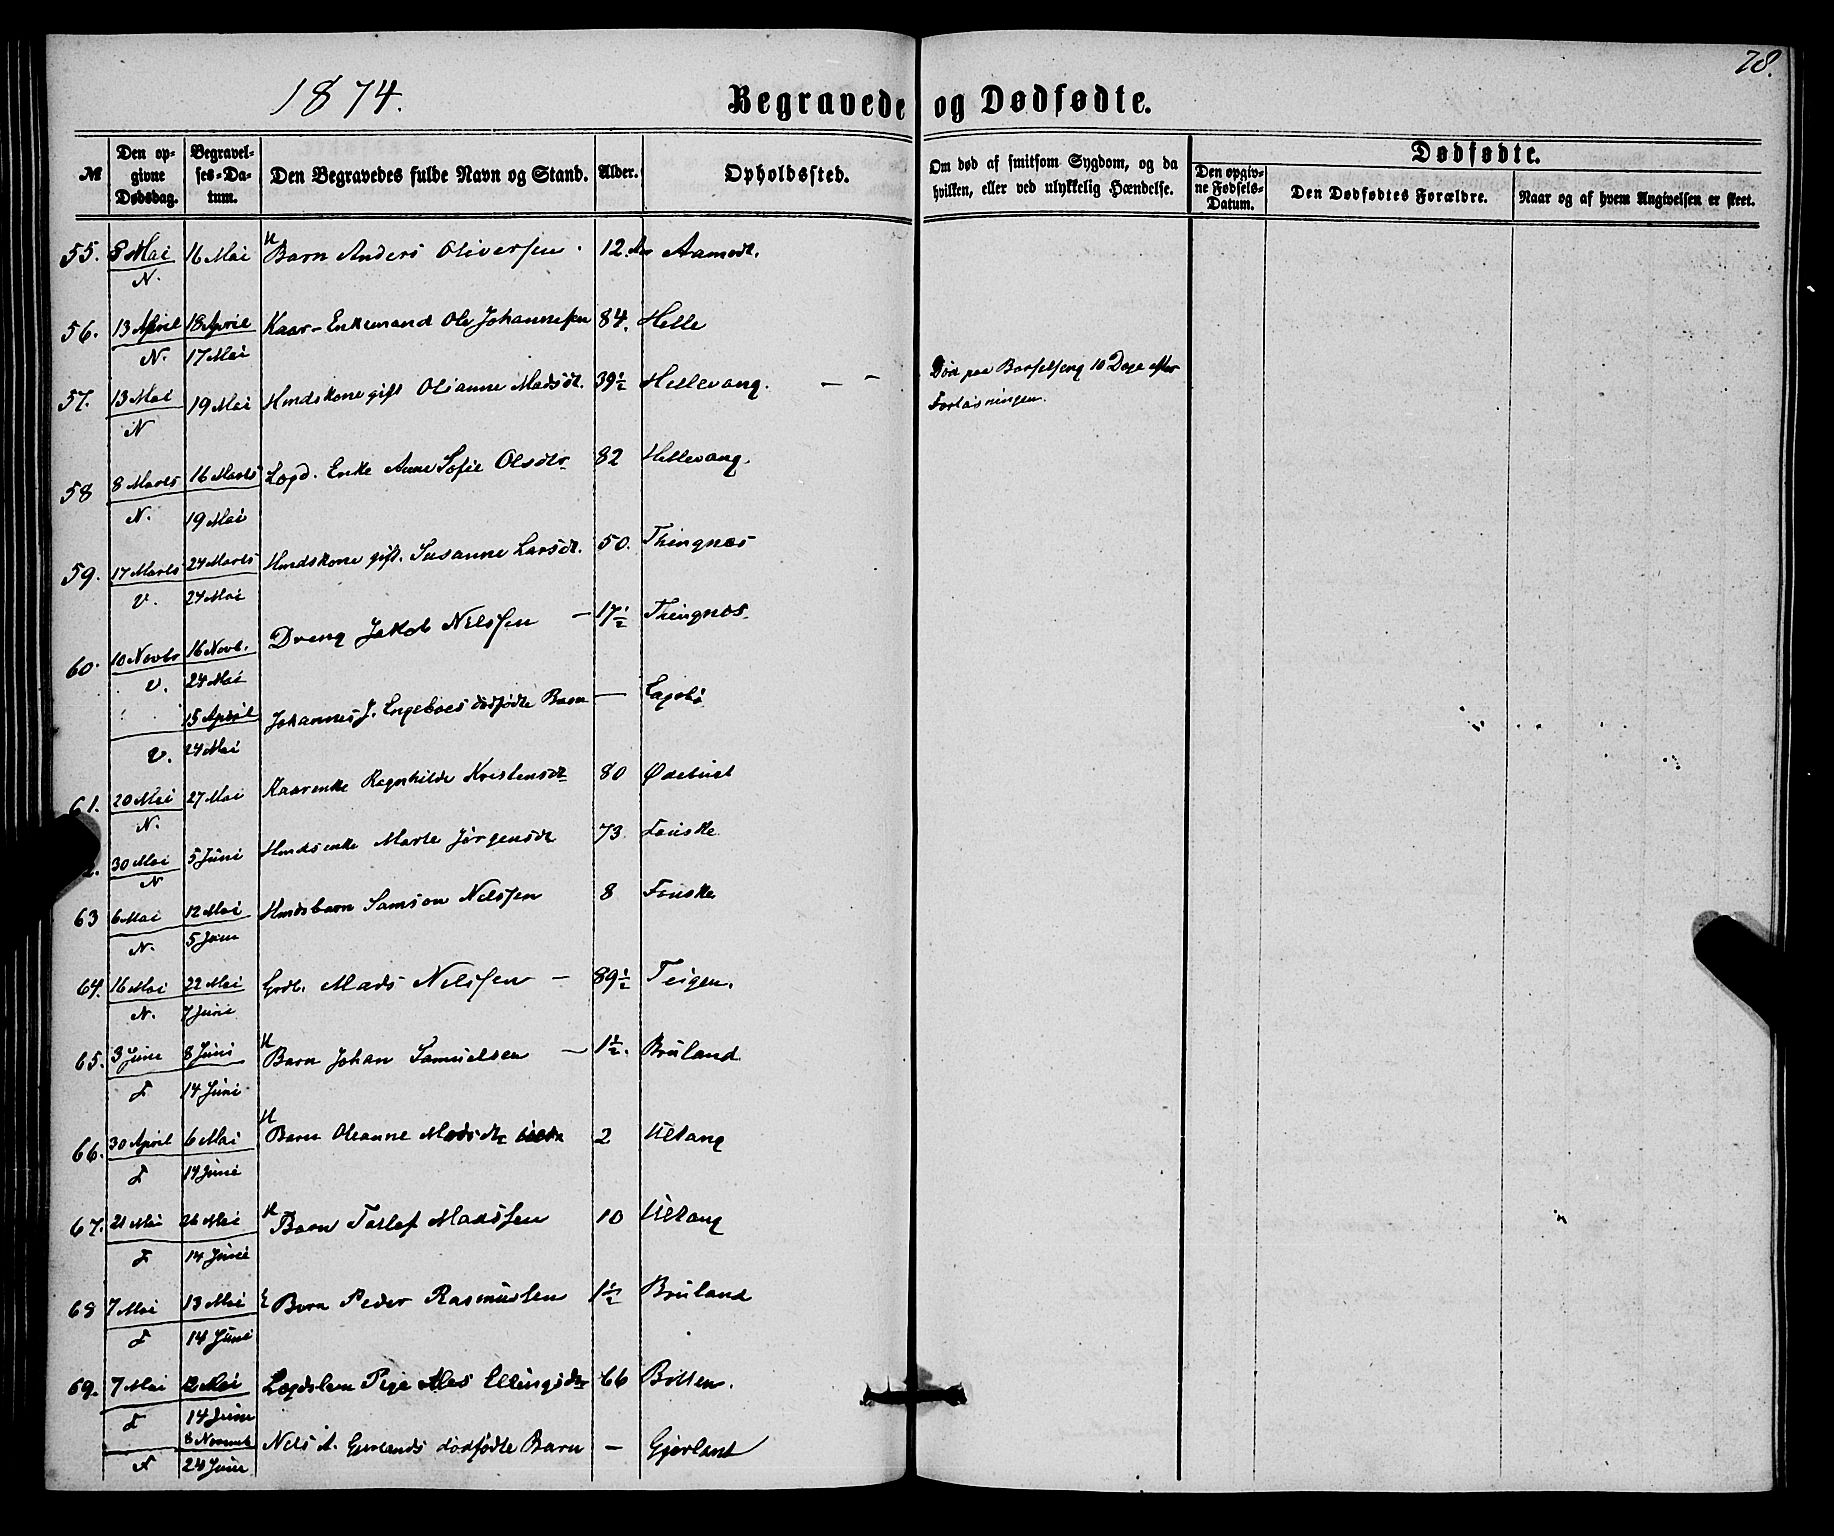 78.
1874.
Begravede og Dødfødte.
№
Den opgivne Dødsdag.
Begravelses-Datum.
Den Begravedes fulde Navn og Stand.
Alder.
Opholdssted.
Om død af smitsom Sygdom, og da hvilken, eller ved ulykkelig Hændelse.
Dødfødte.
Den opgivne Fødsels-Datum.
Den Dødfødtes Forældre.
Naar og af hvem Angivelsen er skeet.
55. 8 Mai 16 Mai H Barn Anders Oliversen 12 Aar Aamodt.
N.
56. 13 April 18 April Kaar-Enkemand Ole Johannessen 84. Helle
N. 17 Mai
57. 13 Mai 19 Mai Hmdskone gift Olianne Madsdt. 39½ Hellevang. — — Død paa Barselseng 10 Dage efter
N Forløsningen.
58 8 Marts 16 Marts Lægd. Enke Anne Sofie Olsdtr 82 Hellevang.
N. 19 Mai
59. 17 Marts 24 Marts Hmdskone gift. Susanne Larsdt. 50. Thingnæs
V. 24 Mai
60. 10 Novbr 16 Novb. Dreng Jakob Nilssen — 17½ Thingnæs.
V. 24 Mai
15 April Johannes J. Engeboes dødfødte Barn —
V. 24 Mai
61. 20 Mai 27 Mai Kaarenke Regnhilde Kristensdt 80 Ødebust
N.
30 Mai 5 Juni Hmdsenke Marte Jørgensdt 73 Fonske
N
63 6 Mai 12 Mai Hmdsbarn Samson Nilssen 8 Fonske
N. 5 Juni
64. 16 Mai 22 Mai Grdb. Mads Nilssen — 89½ Teigen.
N. 7 Juni
65. 3 Juni 8 Juni H Barn Johan Samuelsen — 1½. Bruland
F 14 Juni
66. 30 April 6 Mai H Barn Oleanne Madsdtr 2 Ultang
F 14 Juni
67. 21 Mai 26 Mai H Barn Tollef Madssen 10 Ultang
F 14 Juni
68 7 Mai 13 Mai Barn Peder Rasmussen 1½ Bruland
F 14 Juni
69. 7 Mai 12 Mai Lægdslem Pige Ales Ellingsdtr 66 Botten.
F 14 Juni
8 Novemb Nils A. Gjerlands dødfødte Barn — Gjerland
F 24 Juni